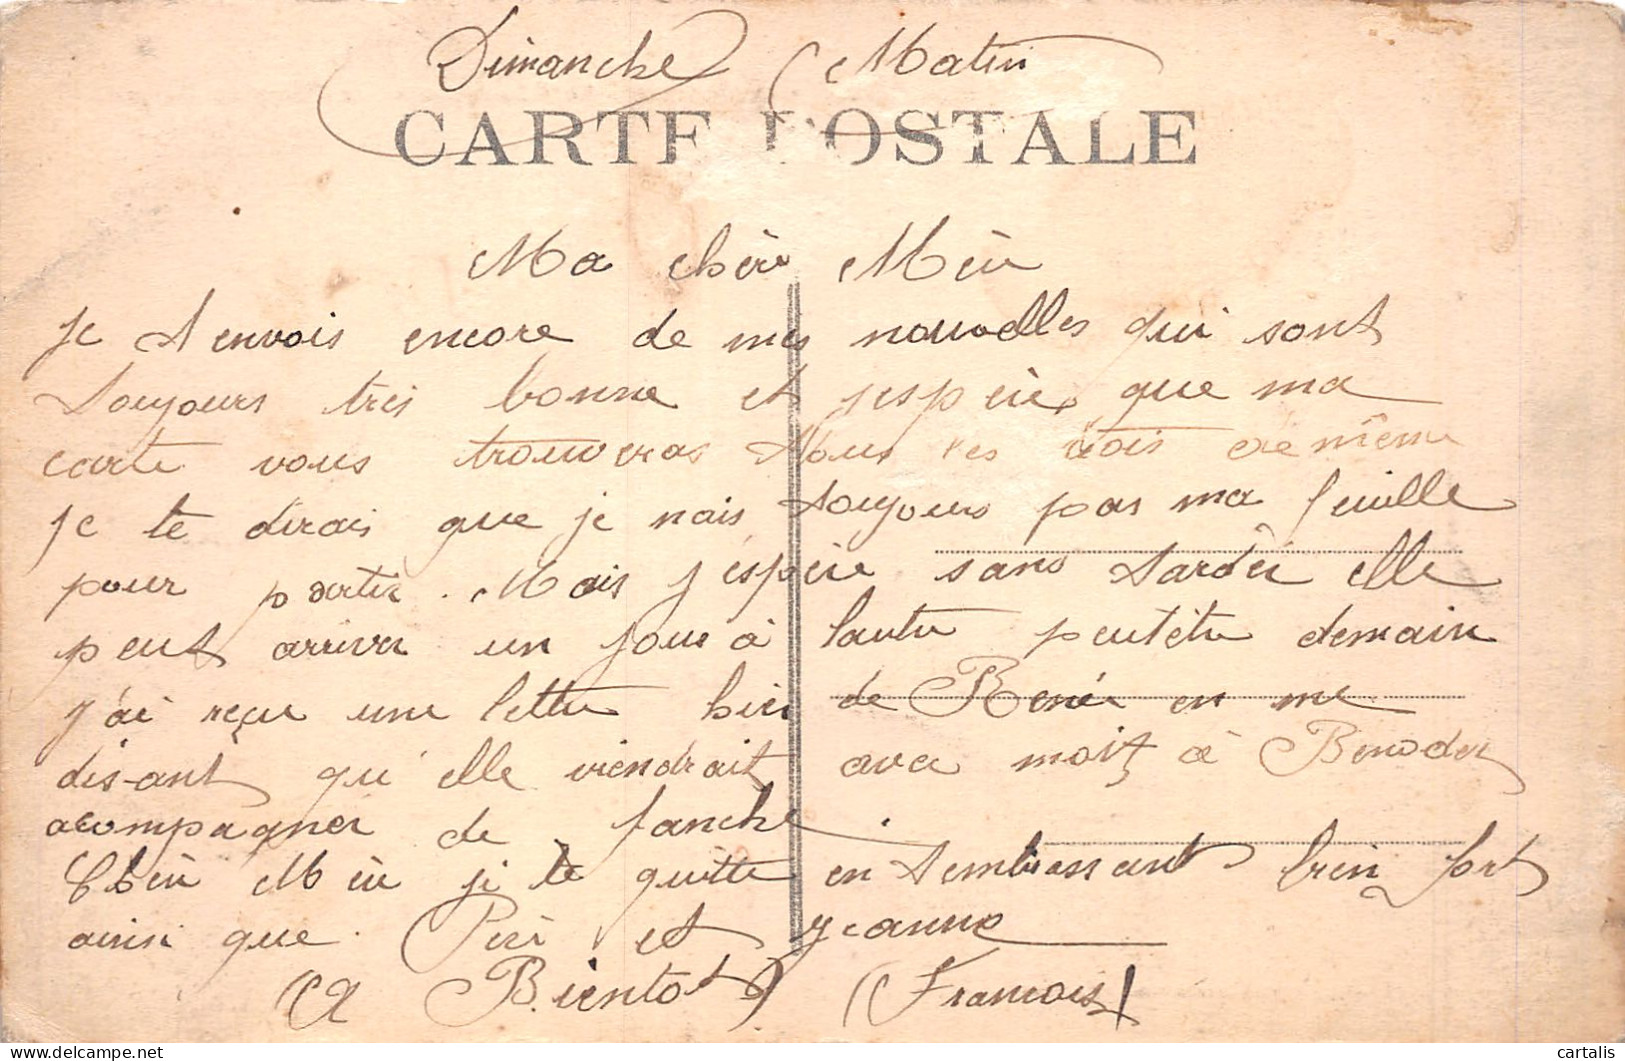 Dimanche Matin
CARTE POSTALE
Ma chère Mère
Je t envois encore de mes nouvelles qui sont
toujours très bonne et jespère que ma
carte vous trouveras tous les trois de même
Je te dirais que je nais toujours pas ma feuille
pour partir. Mais j'espère sans tarder elle
peut arriver un jour à lautre peutêtre demain
j'ai reçu une lettre hier de Renée en me
disant qu'elle viendrait avec moit à Benodet
acompagner de fanche
Chère Mère je te quitte en tembrassant bien fort
ainsi que Père et Jeanne
(A Bientot) (Francois)
cartalis